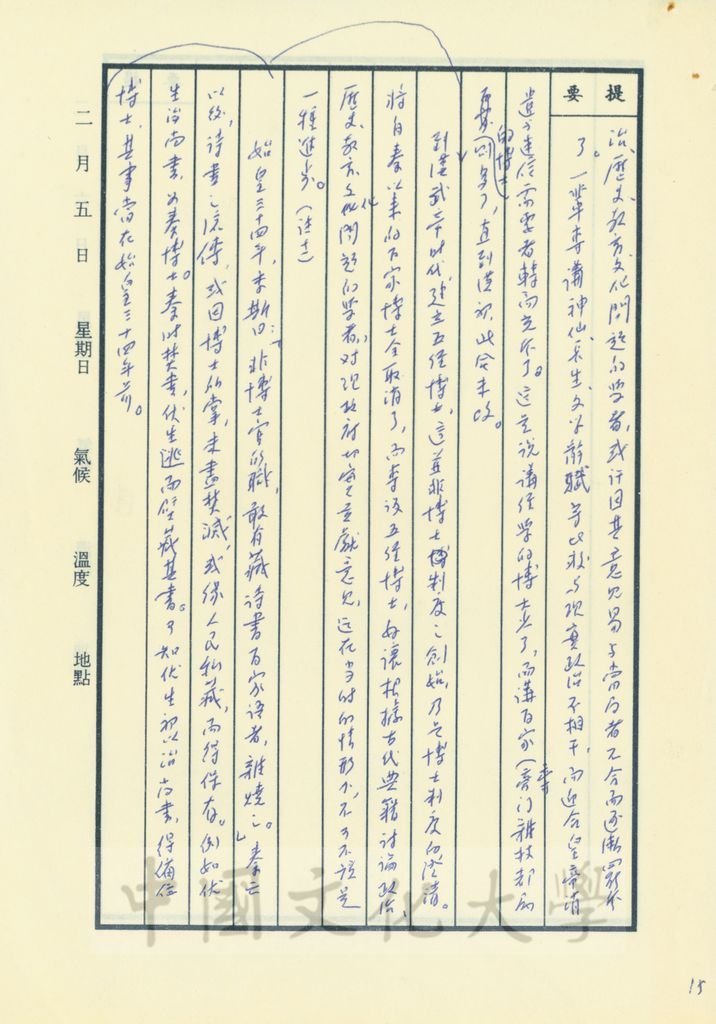 提要
治、歷史、教育、文化問題的學者,或許因其意見易与當局者不合而逐漸罷黜
了。一輩專講神仙、長生、文學辭賦等比較与現實政治不相干,而迎合皇帝消
遣与迷信需要者轉而充斥了。這是說講經學的博士少了,而講百家(旁門雜技都可
算)的博士則多了,直到漢初,此會未改。
到漢武帝時代,建立五經博士,這並非博士制度之創始,乃是博士制度的澄清。
將自秦以來的百家博士全取消了,而專設五經博士,好讓根據古代典籍討論政治、
歷史、教育、文化問題的學者,對現政府切實貢獻意見,這在當時的情形下,不可不說是
一種進步。(註十)
始皇三十四年,李斯曰:「非博士官所職,敢有藏詩書百家語者,雜燒之。」秦亡
以後,詩書之流傳,或因博士所掌,未盡焚滅,或緣人民私藏,而得保存。例如伏
生治尚書,為秦博士。秦時焚書,伏生逃而壁藏其書。可知伏生初以治尚書,得備位
博士,其事當在始皇三十四年前。
二月五日 星期日 氣候 溫度 地點
中國文化大學
15